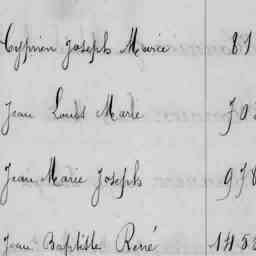 Cyprien Joseph Marie 81
Jean Louis Marie 702
Jean Marie Joseph 978
Jean Baptiste René 1453